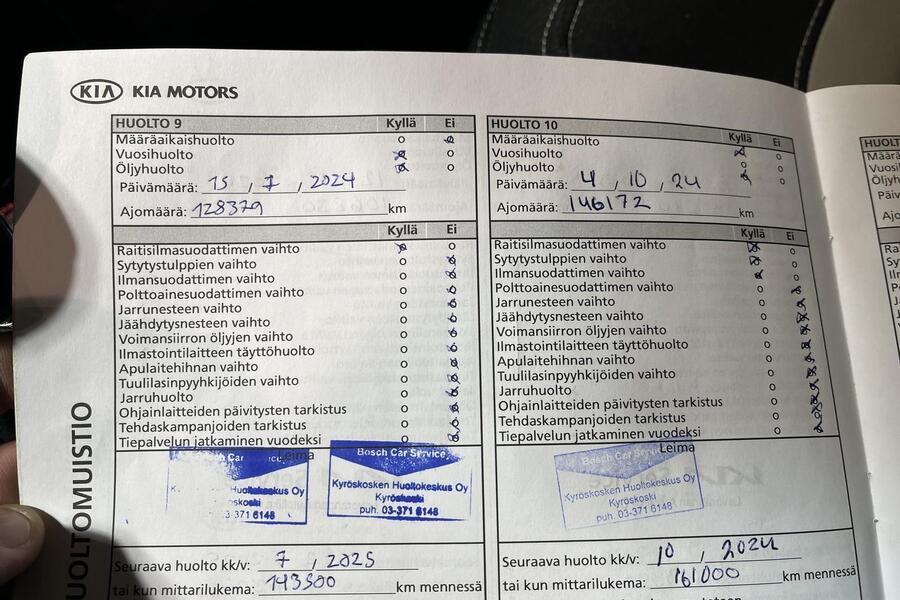 KIA KIA MOTORS
HUOLTO 9 Kyllä Ei
Määräaikaishuolto
Vuosihuolto
Öljyhuolto
Päivämäärä: 15 , 7 , 2024
Ajomäärä: 128379 km
Kyllä Ei
Raitisilmasuodattimen vaihto
Sytytystulppien vaihto
Ilmansuodattimen vaihto
Polttoainesuodattimen vaihto
Jarrunesteen vaihto
Jäähdytysnesteen vaihto
Voimansiirron öljyjen vaihto
Ilmastointilaitteen täyttöhuolto
Apulaitehihnan vaihto
Tuulilasinpyyhkijöiden vaihto
Jarruhuolto
Ohjainlaitteiden päivitysten tarkistus
Tehdaskampanjoiden tarkistus
Tiepalvelun jatkaminen vuodeksi
Leima
Bosch Car
Huoltokeskus Oy
3-371 6148
Bosch Car Service
Kyröskosken Huoltokeskus Oy
Kyröskoski
puh. 03-371 6148
Seuraava huolto kk/v: 7 , 2025
tai kun mittarilukema: 143300 km mennessä
HUOLTO 10 Kyllä Ei
Määräaikaishuolto
Vuosihuolto
Öljyhuolto
Päivämäärä: 4 , 10 , 24
Ajomäärä: 146172 km
Kyllä Ei
Raitisilmasuodattimen vaihto
Sytytystulppien vaihto
Ilmansuodattimen vaihto
Polttoainesuodattimen vaihto
Jarrunesteen vaihto
Jäähdytysnesteen vaihto
Voimansiirron öljyjen vaihto
Ilmastointilaitteen täyttöhuolto
Apulaitehihnan vaihto
Tuulilasinpyyhkijöiden vaihto
Jarruhuolto
Ohjainlaitteiden päivitysten tarkistus
Tehdaskampanjoiden tarkistus
Tiepalvelun jatkaminen vuodeksi
Leima
Bosch Car Service
Kyröskosken Huoltokeskus Oy
Kyröskoski
puh. 03-371 6148
Seuraava huolto kk/v: 10 , 2024
tai kun mittarilukema: 161000 km mennessä
UOLTOMUISTIO